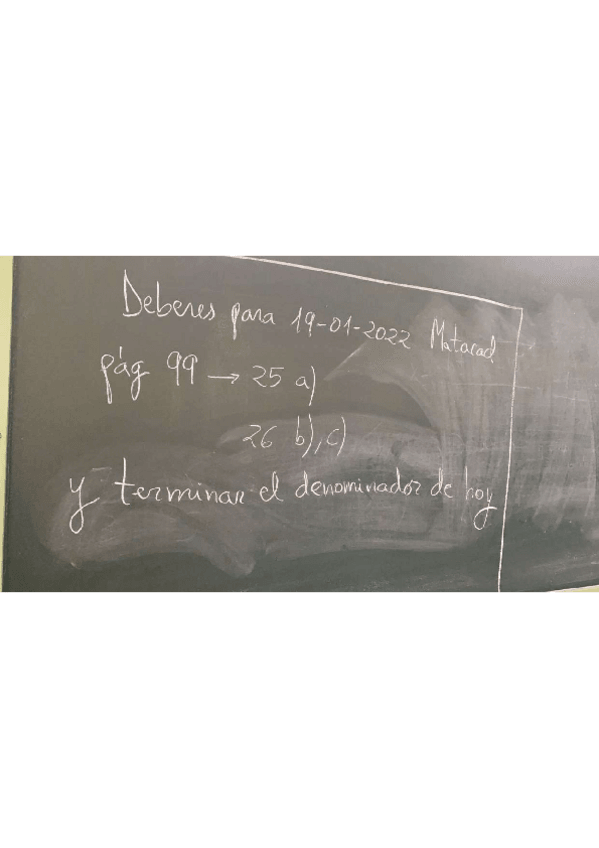 Deberes para 19-01-2022 Matacad
pág 99 → 25 a)
26 b), c)
y terminar el denominador de hoy